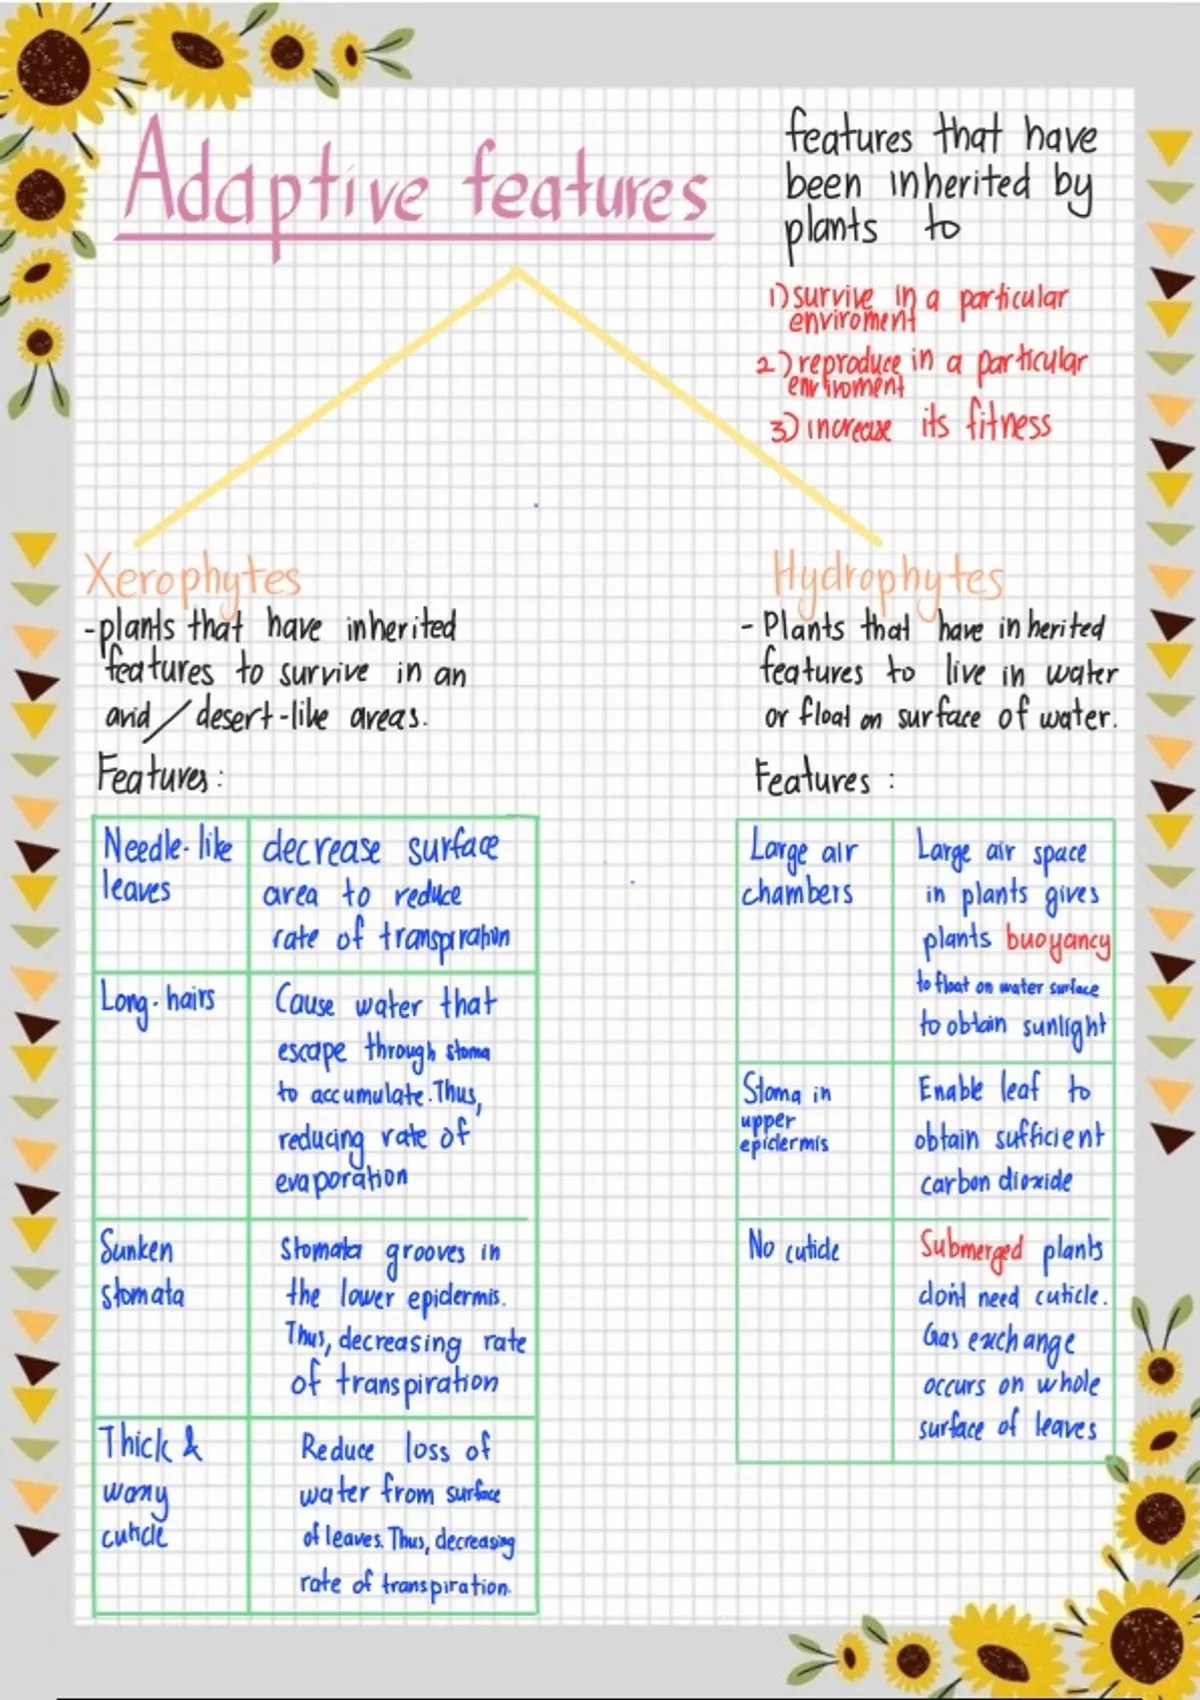 Adaptive features
features that have
been inherited by
plants to
1) survive in a particular
enviroment
2) reproduce in a particular
enviroment
3) increase its fitness
Xerophytes
- plants that have inherited
features to survive in an
arid / desert-like areas.
Features :
Needle-like
leaves
decrease surface
area to reduce
rate of transpiration
Long-hairs
Cause water that
escape through stoma
to accumulate. Thus,
reducing rate of
evaporation
Sunken
stomata
Stomata grooves in
the lower epidermis.
Thus, decreasing rate
of transpiration
Thick &
waxy
cuticle
Reduce loss of
water from surface
of leaves. Thus, decreasing
rate of transpiration.
Hydrophytes
- Plants that have inherited
features to live in water
or float on surface of water.
Features :
Large air
chambers
Large air space
in plants gives
plants buoyancy
to float on water surface
to obtain sunlight
Stoma in
upper
epidermis
Enable leaf to
obtain sufficient
carbon dioxide
No cuticle
Submerged plants
don't need cuticle.
Gas exchange
occurs on whole
surface of leaves